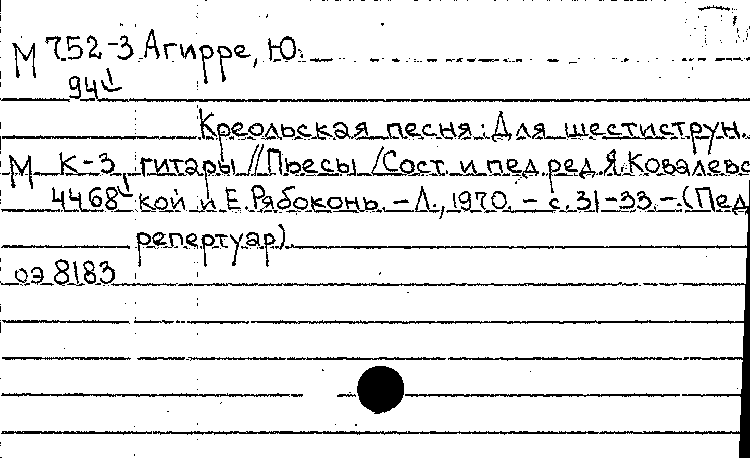 М 752-3 Агирре, Ю.
94
Креольская песня: Для шестиструн.
М К-3 гитары // Пьесы / Сост. и пед. ред. Я. Ковалевс
4468 кой и Е. Рябоконь. - Л., 1970. - с. 31-33. - (Пед
репертуар).
оэ 8183